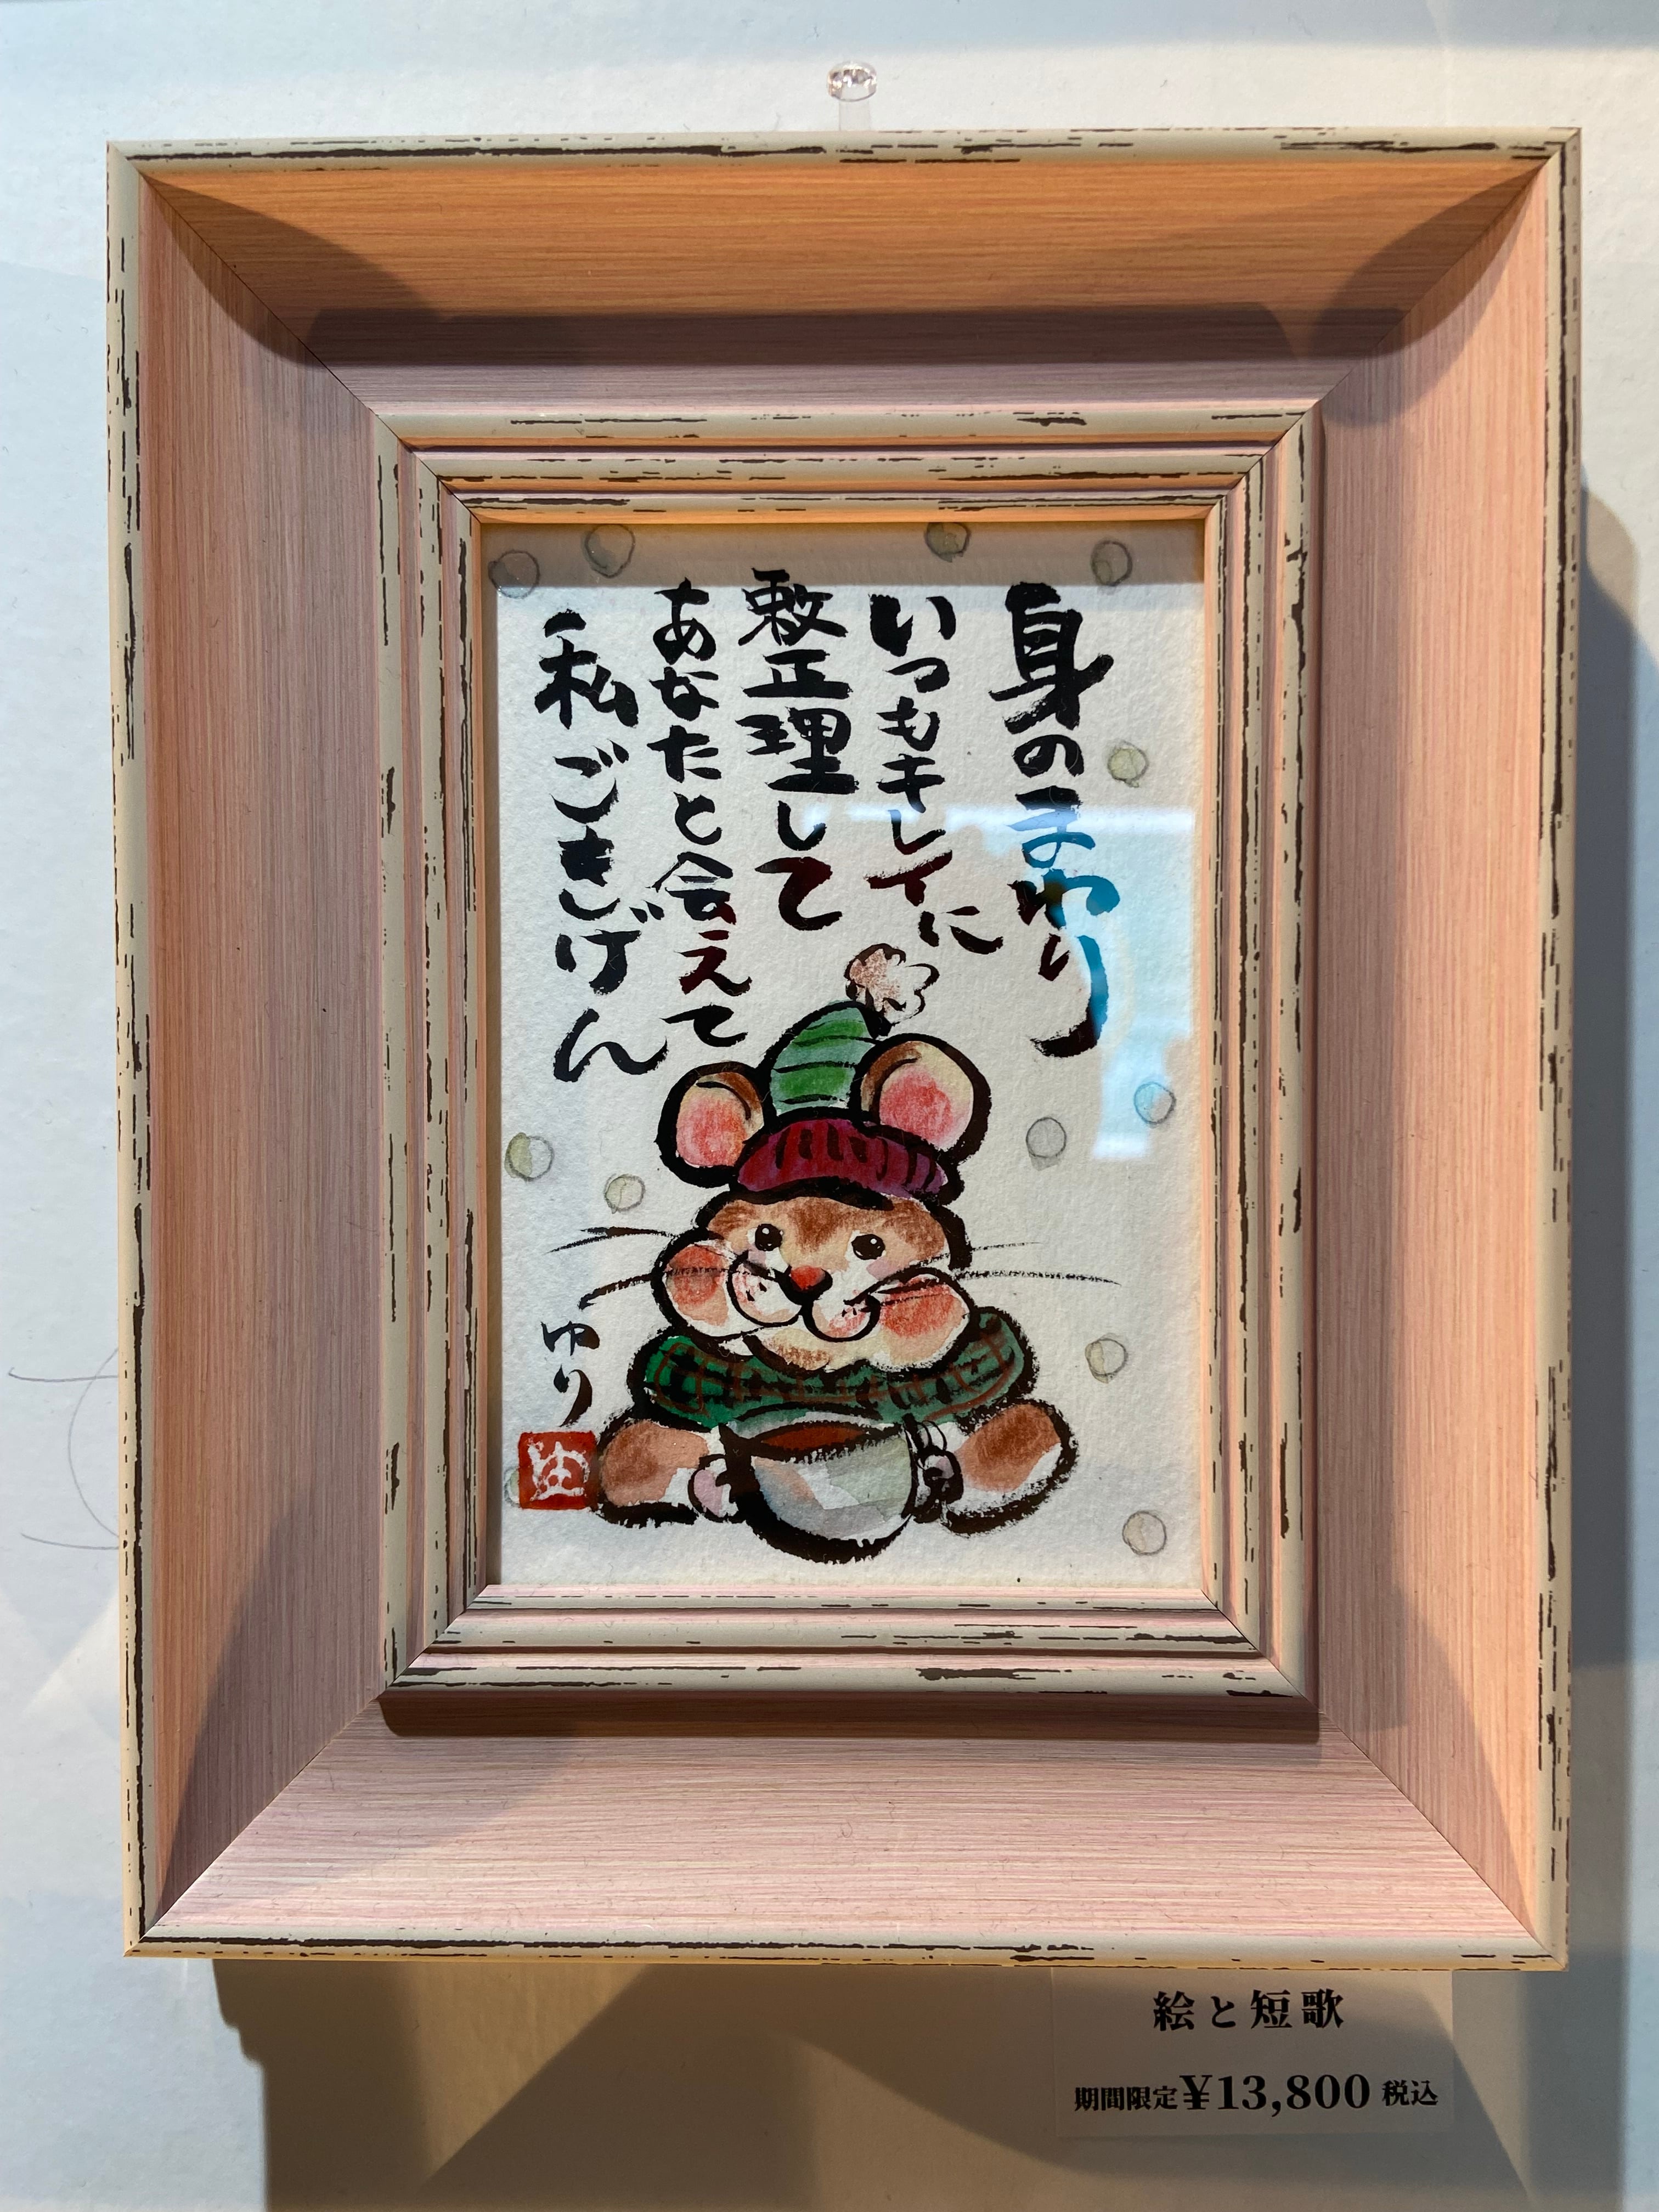 身のまわり
いつもキレイに
整理して
あなたと会えて
私ごきげん
ゆり
絵と短歌
期間限定¥13,800 税込